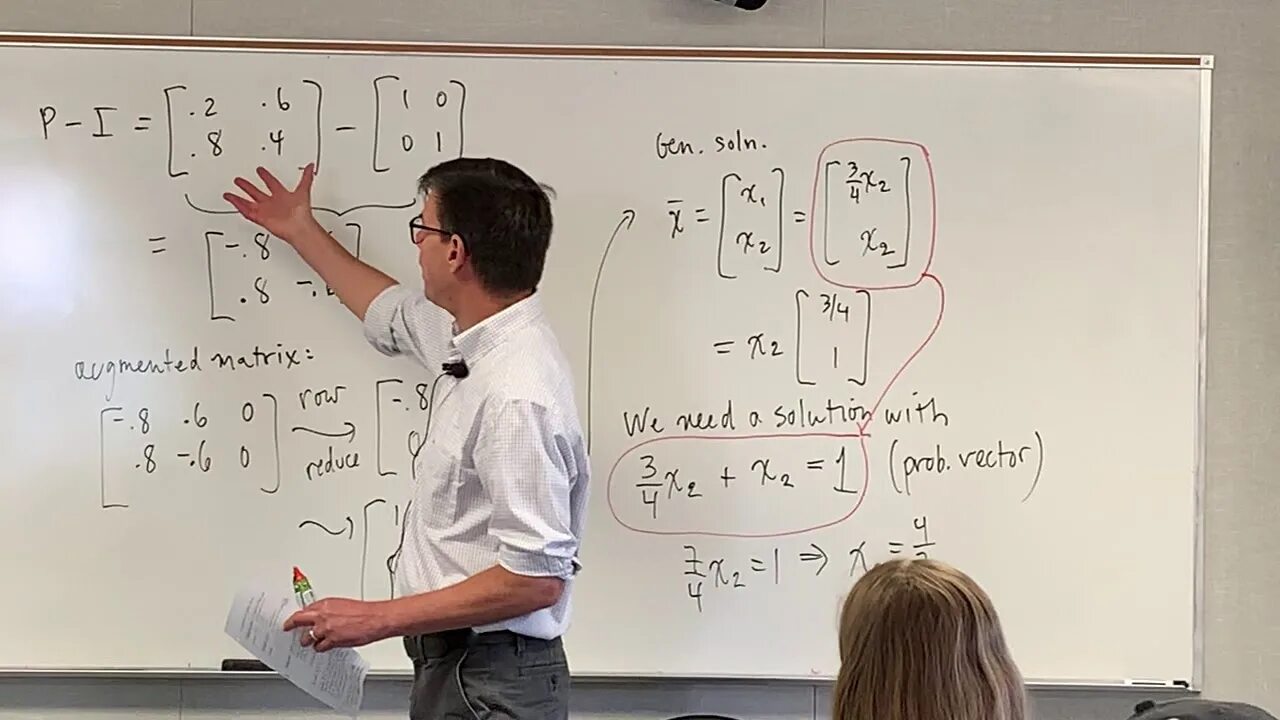 P - I = [.2 .6
.8 .4] - [1 0
0 1]
= [-.8
.8 -.
augmented matrix:
[-.8 .6 0
.8 -.6 0] row reduce [-.8
[1
Gen. soln.
x̄ = [x₁
x₂] = [3/4 x₂
x₂]
= x₂ [3/4
1]
We need a solution with
3/4 x₂ + x₂ = 1 (prob. vector)
7/4 x₂ = 1 ⇒ x = 4